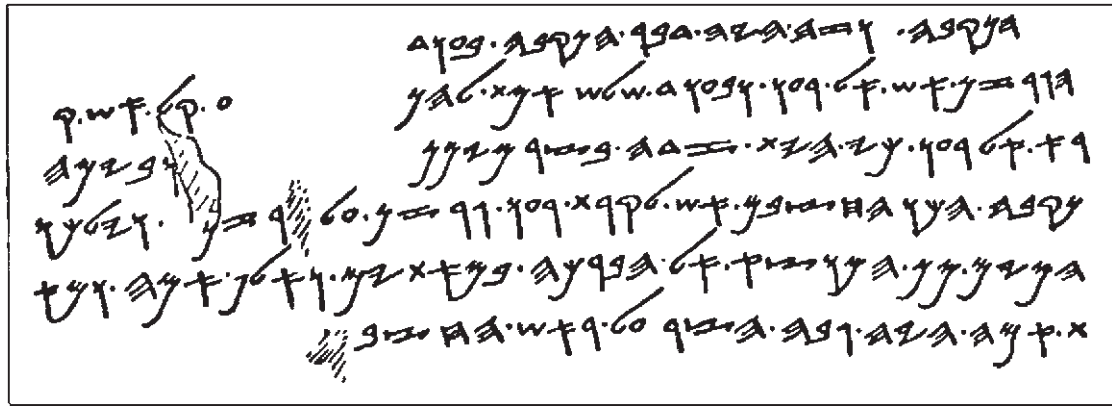 𐤄𐤍𐤒𐤁𐤄. 𐤅𐤆𐤄.𐤄𐤉𐤄.𐤃𐤁𐤓.𐤄𐤍𐤒𐤁𐤄.𐤁𐤏𐤅𐤃
𐤄𐤂𐤓𐤆𐤍.𐤀𐤔.𐤀𐤋.𐤓𐤏𐤅.𐤅𐤁𐤏𐤅𐤃.𐤔𐤋𐤔 𐤀𐤌𐤕.𐤋𐤄𐤍 𐤏.𐤒𐤋.𐤀𐤔.𐤒
𐤓𐤀.𐤀𐤋 𐤓𐤏𐤅.𐤊𐤉.𐤄𐤉𐤕.𐤆𐤃𐤄.𐤁𐤑𐤓 𐤌𐤉𐤌𐤍 𐤅𐤁𐤉𐤌 𐤄
𐤍𐤒𐤁𐤄.𐤄𐤊𐤅 𐤄𐤇𐤑𐤁𐤌.𐤀𐤔.𐤋𐤒𐤓𐤕 𐤓𐤏𐤅.𐤂𐤓𐤆𐤍.𐤏𐤋 𐤂𐤓𐤆𐤍.𐤅𐤉𐤋𐤊𐤅
𐤄𐤌𐤉𐤌.𐤌𐤍.𐤄𐤌𐤅𐤑𐤀.𐤀𐤋.𐤄𐤁𐤓𐤊𐤄.𐤁𐤌𐤀𐤕𐤉𐤌.𐤅𐤀𐤋𐤐.𐤀𐤌𐤄.𐤅𐤌𐤀
𐤕.𐤀𐤌𐤄.𐤄𐤉𐤄.𐤂𐤁𐤄.𐤄𐤑𐤓 𐤏𐤋.𐤓𐤀𐤔.𐤄𐤇𐤑𐤁